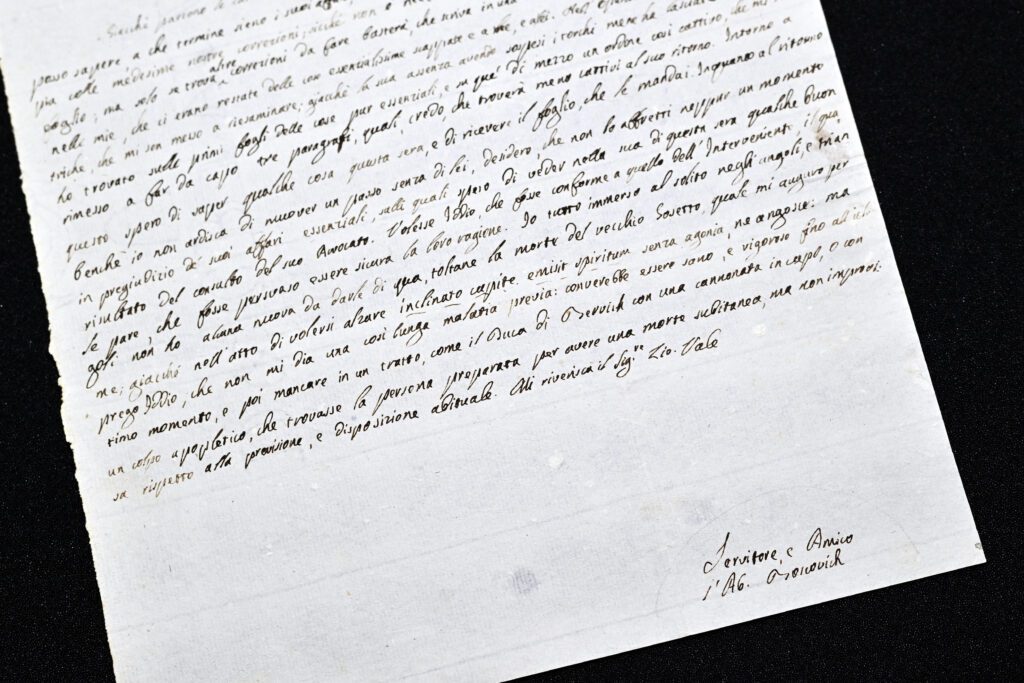 Giacché parlono di
posso sapere a che termine sieno i suoi
più colle medesime nostre correzioni; sicché non è
voglio; ma solo se trova altre correzioni da fare basterà, che scriva in una
nelle mie, che ci erano restate delle cose essenzialissime suppiate e a me, e a lei. Nell'
triche, che mi son messo a riesaminare; giacché la sua assenza avendo sospesi i torchi me ne ha lasciato
ho trovato sulli primi fogli delle cose pur essenziali, e in que' di mezzo un ordine così cattivo, che mi
rimesso a far da capo tre paragrafi, quali, credo, che troverà meno cattivi al suo ritorno. Intorno a
questo spero di saper qualche cosa questa sera, e di ricevere il foglio, che le mandai. In quanto al ritorno
benché io non ardisca di muover un passo senza di lei, desidero, che non lo affretti neppur un momento
in pregiudizio de' suoi affari essenziali, sulli quali spero di veder nella sua di questa sera qualche buon
risultato del consulto del suo Avvocato. Volesse Iddio, che fosse conforme a quello dell'Interveniente, il qua
le pare, che fosse persuaso essere sicura la loro ragione. Io tutto immerso al solito negli angoli, e trian
goli non ho alcuna nuova da darle di qua, toltane la morte del vecchio Sosetto, quale mi auguro per
me; giacché nell'atto di volersi alzare inclinato capite emisit spiritum senza agonia, ne angosce: ma
prego Iddio, che non mi dia una così lunga malatia previa: converebbe essere sano, e vigoroso fino all'ul
timo momento, e poi mancare in un tratto, come il Duca di Bervich con una cannonata in capo, o con
un colpo apopletico, che trovasse la persona preparata per avere una morte subitanea, ma non improvi:
sa rispetto alla previsione, e disposizione abituale. Mi riverisca il Sigre Zio. Vale
Servitore, e Amico
l'Ab. Boscovich